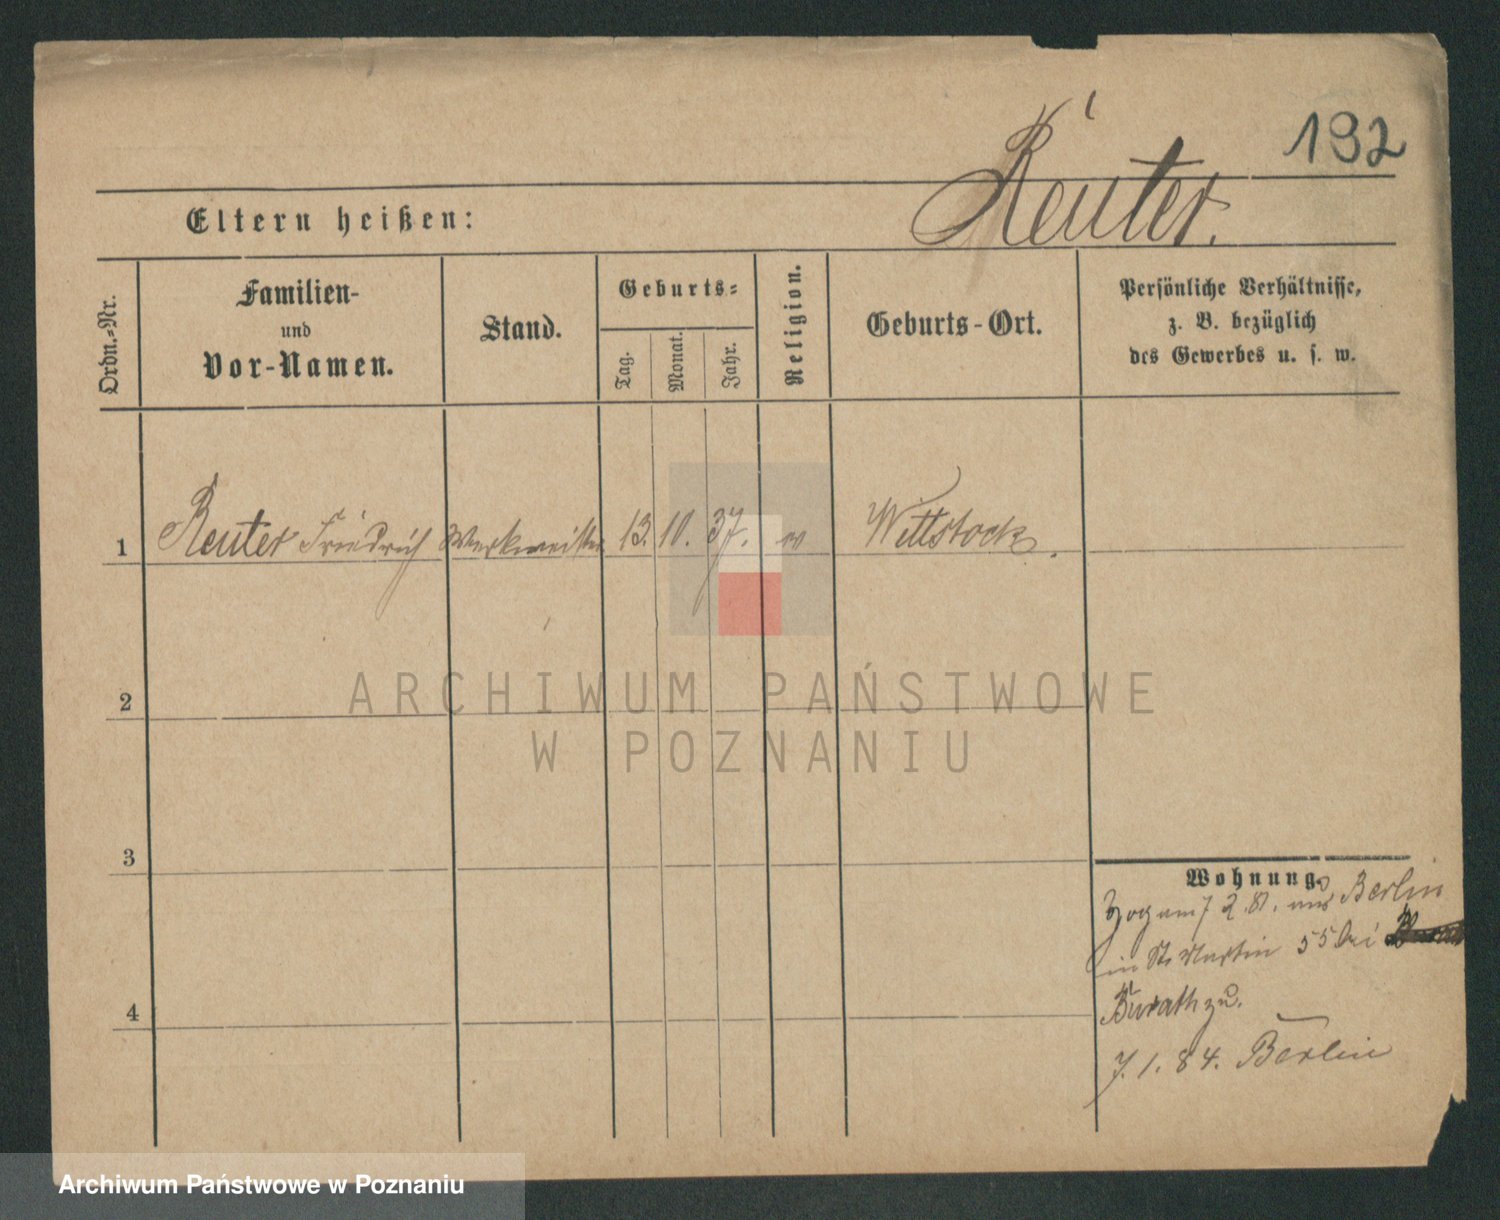 192
Reuter.
Eltern heißen:
Ordn.-Nr.
Familien-
und
Vor-Namen.
Stand.
Geburts-
Tag.
Monat.
Jahr.
Religion.
Geburts-Ort.
Persönliche Verhältnisse,
z. B. bezüglich
des Gewerbes u. s. w.
1 Reuter Friedrich Werkmeister 13. 10. 37. ev Wittstock.
2
3
4
Wohnung.
Zog am 7 2. 81. aus Berlin
in St. Martin 55 bei
zu.
7. 1. 84. Berlin
ARCHIWUM PAŃSTWOWE
W POZNANIU
Archiwum Państwowe w Poznaniu